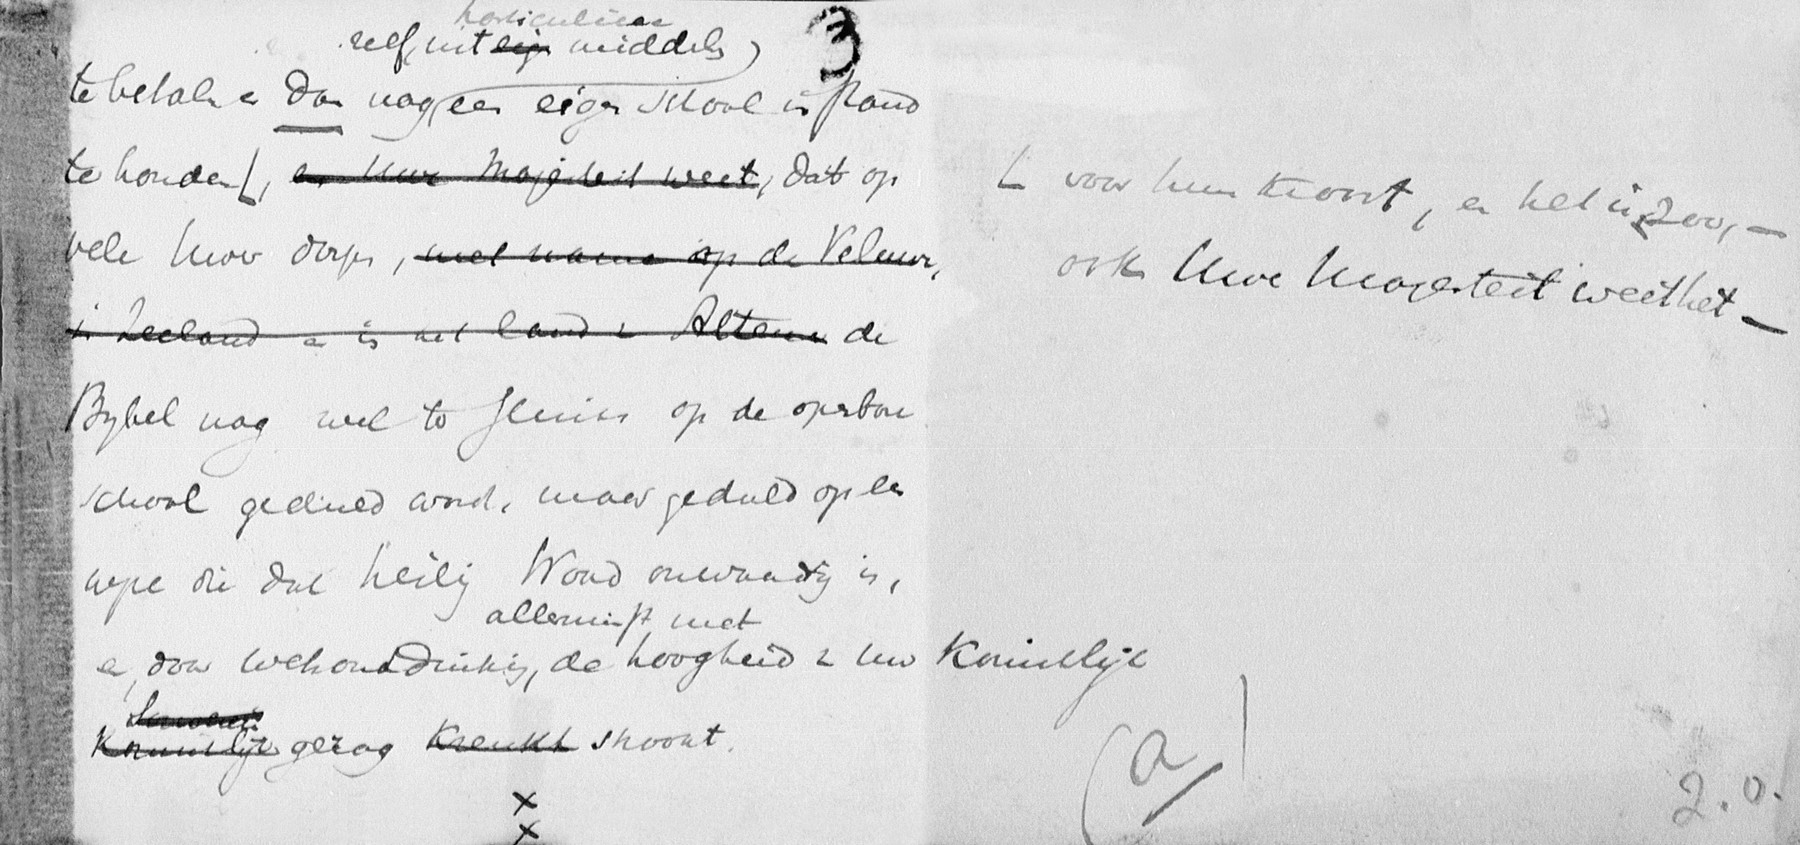 3
zelf, uit eigen middelen,
te betalen en dan nog een eigen school in stand
te houden, en Uwe Majesteit weet, dat op
vele Uwer dorpen, met name op de Veluwe,
in Zeeland en in het land v Altena de
Bijbel nog wel ter sluiks op de openbare
school geduld wordt, maar geduld op een
wijze die dat heilig Woord onwaardig is,
allerminst met
en, door wetsontduiking, de hoogheid v Uw Koninklijk
Koninklijk gezag krenkt strookt.
x
x
voor hun troost, en het is zoo, —
ook Uwe Majesteit weet het —
(a)
2.0.